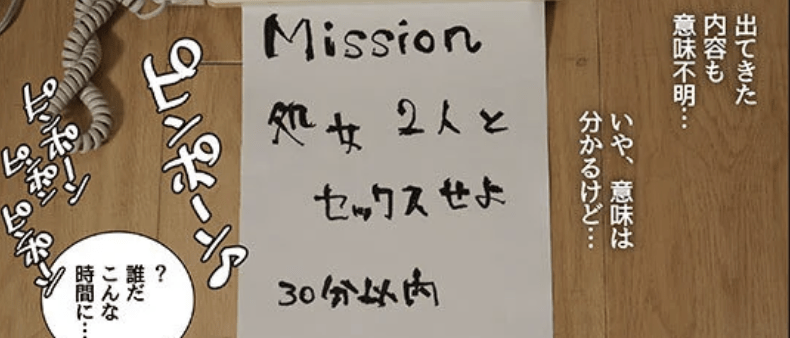 出てきた
内容も
意味不明…
いや、意味は
分かるけど…
Mission
処女2人と
セックスせよ
30分以内
ピンポーン♪
ピンポーン
ピンポン
ピンポーン
？
誰だ
こんな
時間に…